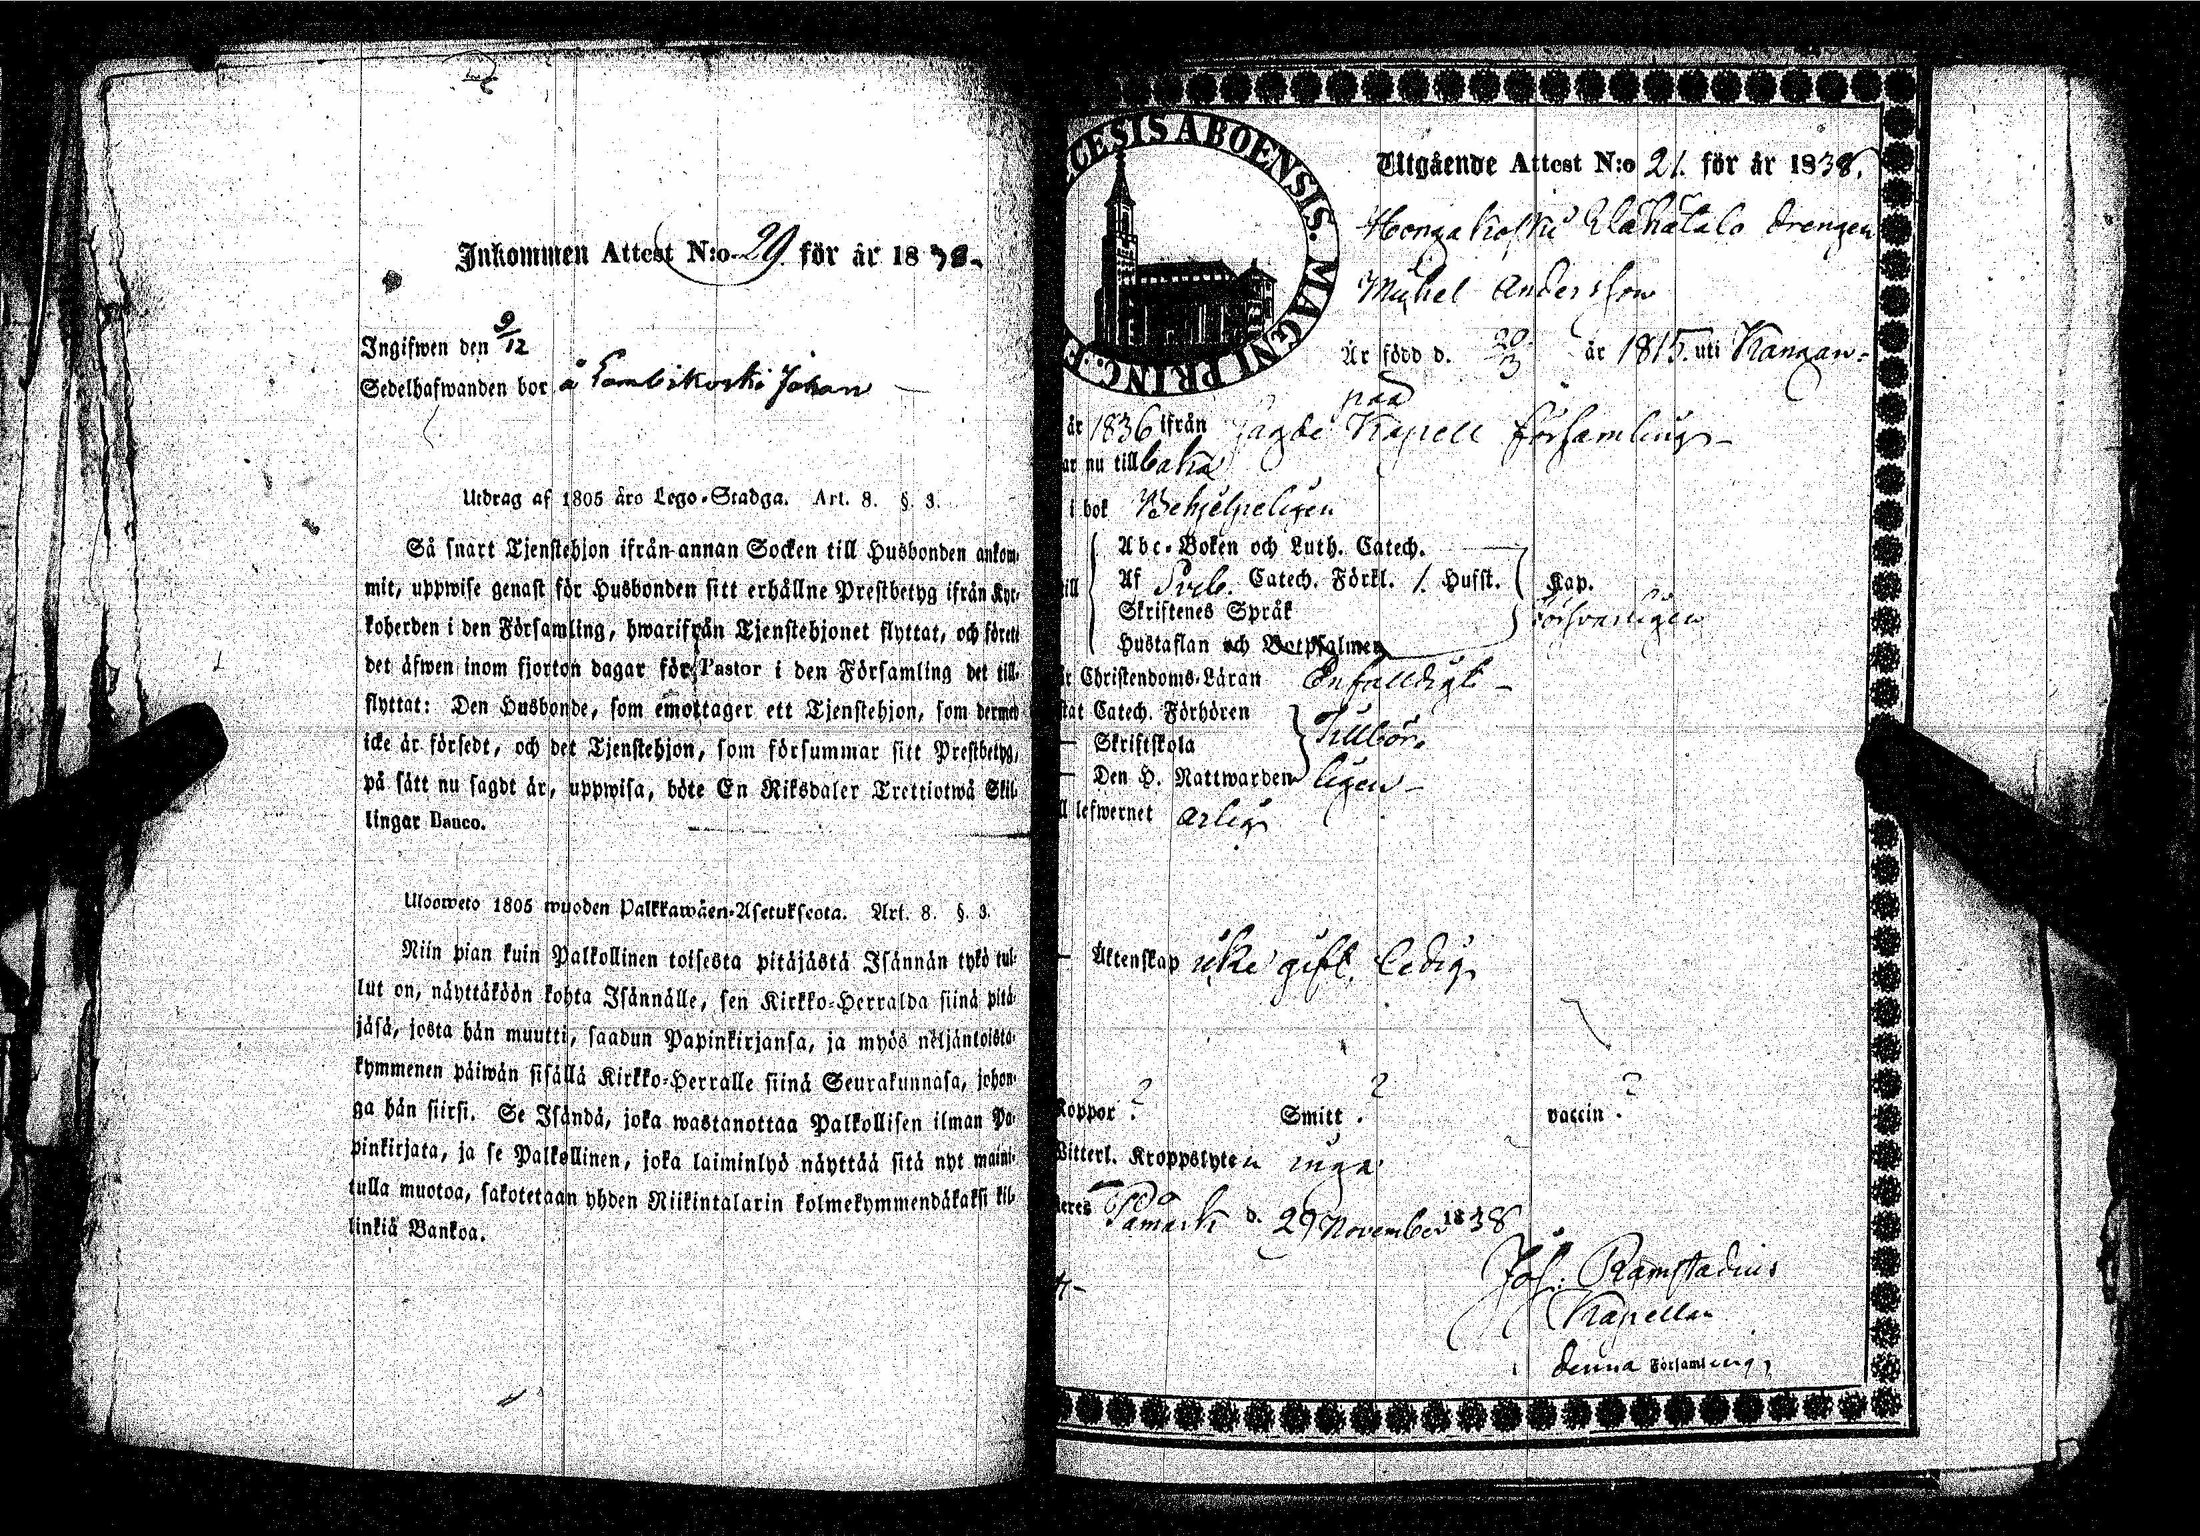 Inkommen Attest N:o 29. för år 1838.
Ingifwen den 9/12
Sedelhafwanden bor å Lambikoski Johan
Utdrag af 1805 åro Lego-Stadga. Art. 8. §. 3.
Så snart Tjenstehjon ifrån annan Socken till Husbonden ankom-
mit, uppwise genast för Husbonden sitt erhållne Prestbetyg ifrån Kyr-
koherden i den Församling, hwarifrån Tjenstehjonet flyttat, och förete
det äfwen inom fjorton dagar för Pastor i den Församling det till-
flyttat: Den Husbonde, som emottager ett Tjenstehjon, som dermed
icke är försedt, och det Tjenstehjon, som försummar sitt Prestbetyg,
på sätt nu sagdt är, uppwisa, böte En Riksdaler Trettiotwå Skil-
lingar Banco.
Ulosweto 1805 wuoden Palkkawäen-Asetuksesta. Art. 8. §. 3.
Niin pian kuin Palkollinen toisesta pitäjästä Isännän tykö tul-
lut on, näyttäköön kohta Isännälle, sen Kirkko-Herralda siinä pitä-
jäsä, josta hän muutti, saadun Papinkirjansa, ja myös neljäntoista-
kymmenen päiwän sisällä Kirkko-Herralle siinä Seurakunnasa, johon-
ga hän siirsi. Se Isändä, joka wastanottaa Palkollisen ilman Pa-
pinkirjata, ja se Palkollinen, joka laiminlyö näyttää sitä nyt maini-
tulla muotoa, sakotetaan yhden Riikintalarin kolmekymmendäkaksi kil-
linkiä Bankoa.
CESIS ABOENSIS. MAGNI PRINC. F
Utgående Attest N:o 21. för år 1838.
Hongakoski Ylähätalo drengen
Michel Andersson
Är född d. 20/3 år 1815. uti Kangan-
paa
år 1836 ifrån sagde Kapell Församling
ar nu tillbaka
i bok Behjelpeligen
Abc-Boken och Luth. Catech.
till Af Sveb. Catech. Förkl. 1. Husst. Kap.
Skriftenes Språk försvarligen
Hustaflan och Botpsalmen
Christendoms-Läran Enfalldigt
tat Catech. Förhören
Skriftskola Tillbör-
Den H. Nattwarden ligen
ll lefwernet ärlig
Äktenskap icke gift, ledig
Koppor ? Smitt ? vaccin ?
Witterl. Kroppslyten inga
deres Påmark d. 29 November 1838
Joh: Ramstadius
Kapellan
i denna Församling,